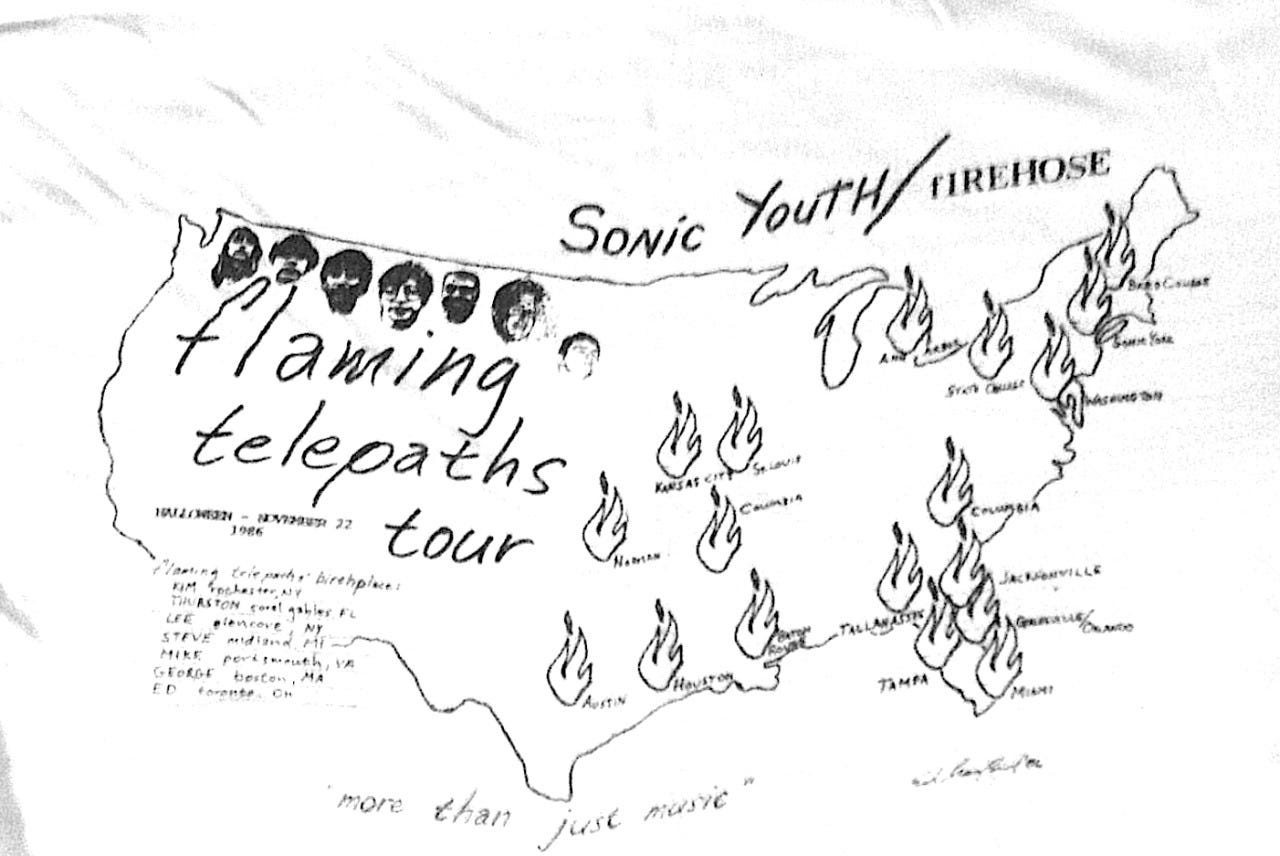 Sonic Youth/fIREHOSE
flaming
telepaths
tour
HALLOWEEN - NOVEMBER 22
1986
flaming telepaths' birthplace:
KIM rochester, NY
THURSTON coral gables, FL
LEE glencove, NY
STEVE midland, MI
MIKE portsmouth, VA
GEORGE boston, MA
ED toronto, OH
Ann Arbor
State College
Washington
Kansas City
St. Louis
Columbia
Norman
Columbia
Jacksonville
Tallahassee
Gainesville/
Orlando
Baton
Rouge
Austin
Houston
Tampa
Miami
"more than just music"